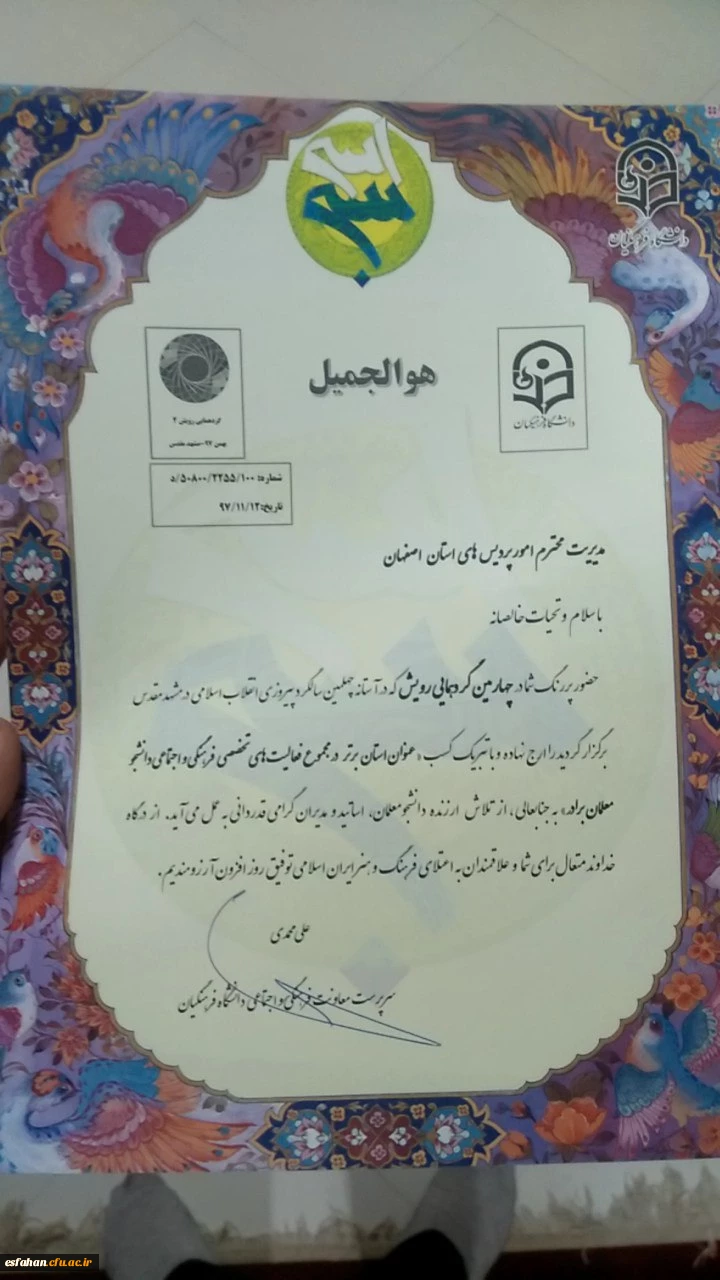 بسم الله
دانشگاه فرهنگیان
هوالجمیل
گردهمایی رویش ۴
بهمن ۹۷-مشهد مقدس
دانشگاه فرهنگیان
شماره: ۵۰۸۰۰/۲۲۵۵/۱۰۰/د
تاریخ: ۹۷/۱۱/۱۲
مدیریت محترم امور پردیس های استان اصفهان
با سلام و تحیات خالصانه
حضور پررنگ شما در چهارمین گردهمایی رویش که در آستانه چهلمین سالگرد پیروزی انقلاب اسلامی در مشهد مقدس
برگزار گردید را ارج نهاده و با تبریک کسب «عنوان استان برتر در مجموع فعالیت های تخصصی فرهنگی و اجتماعی دانشجو
معلمان برادر» به جنابعالی، از تلاش ارزنده دانشجو معلمان، اساتید و مدیران گرامی قدردانی به عمل می آید. از درگاه
خداوند متعال برای شما و علاقمندان به اعتلای فرهنگ و هنر ایران اسلامی توفیق روز افزون آرزومندیم.
علی محمدی
سرپرست معاونت فرهنگی و اجتماعی دانشگاه فرهنگیان
esfahan.cfu.ac.ir